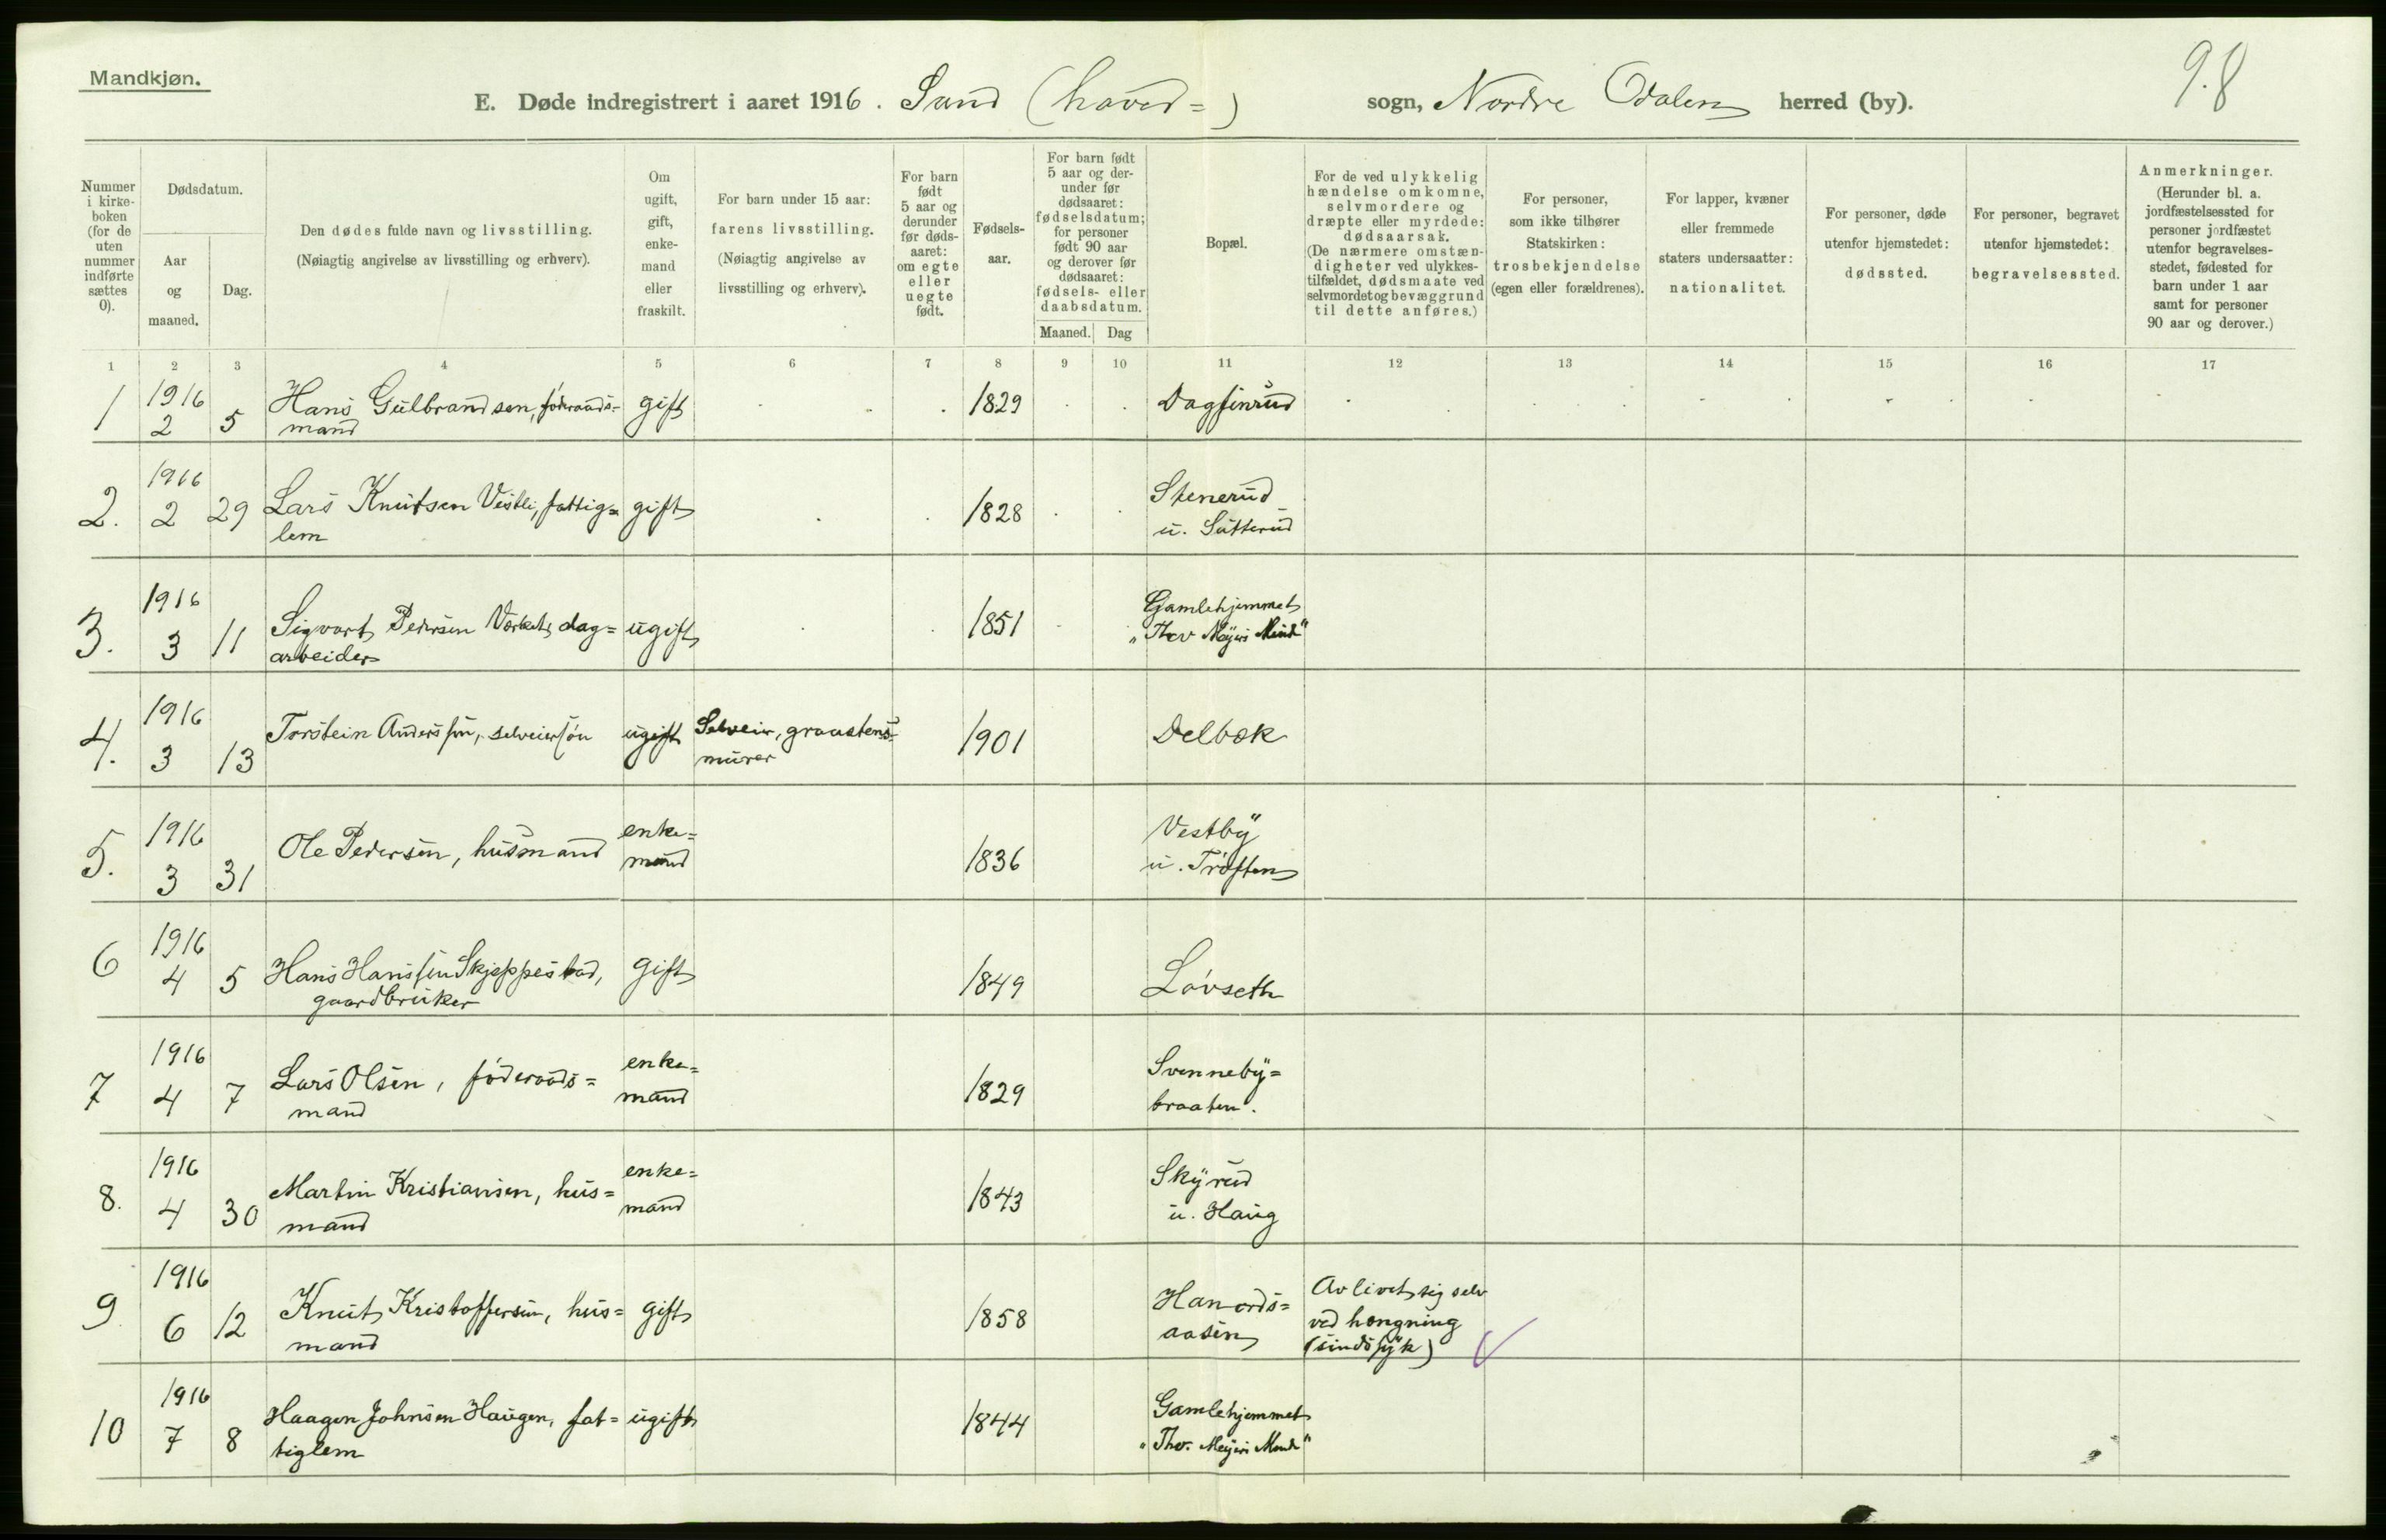 Mandkjøn.
98
E. Døde indregistrert i aaret 1916. Sand (hoved=) sogn, Nordre Odalen herred (by).
Nummer i kirke-boken (for de uten nummer indførte sættes 0).
Dødsdatum.
Aar og maaned.
Dag.
Den dødes fulde navn og livsstilling.
(Nøiagtig angivelse av livsstilling og erhverv).
Om ugift, gift, enke-mand eller fraskilt.
For barn under 15 aar: farens livsstilling.
(Nøiagtig angivelse av livsstilling og erhverv).
For barn født 5 aar og derunder før døds-aaret: om egte eller uegte født.
Fødsels-aar.
For barn født 5 aar og der-under før dødsaaret: fødselsdatum; for personer født 90 aar og derover før dødsaaret: fødsels- eller daabsdatum.
Maaned. Dag
Bopæl.
For de ved ulykkelig hændelse omkomne, selvmordere og dræpte eller myrdede: dødsaarsak.
(De nærmere omstæn-digheter ved ulykkes-tilfældet, dødsmaate ved selvmordet og bevæggrund til dette anføres.)
For personer, som ikke tilhører Statskirken: trosbekjendelse (egen eller forældrenes).
For lapper, kvæner eller fremmede staters undersaatter: nationalitet.
For personer, døde utenfor hjemstedet: dødssted.
For personer, begravet utenfor hjemstedet: begravelsessted.
Anmerkninger.
(Herunder bl. a. jordfæstelsessted for personer jordfæstet utenfor begravelses-stedet, fødested for barn under 1 aar samt for personer 90 aar og derover.)
1 2 3 4 5 6 7 8 9 10 11 12 13 14 15 16 17
1 1916 2 5 Hans Gulbrandsen, föderaads-mand gift 1829 Dagfinrud
2. 1916 2 29 Lars Knutsen Vestli, fattig=lem gift 1828 Stenerud u. Sätterud
3. 1916 3 11 Sigvart Pedersen Værket, dag=arbeider ugift 1851 Gamlehjemmet "Thv Meyers Minde"
4. 1916 3 13 Torstein Anderssen, selveiersön ugift Selveier, graastens-murer 1901 Delbæk
5. 1916 3 31 Ole Pedersen, husmand enke=mand 1836 Vestby u. Tröften
6 1916 4 5 Hans Hanssen Skjeppestad, gaardbruker gift 1849 Lövseth
7 1916 4 7 Lars Olsen, föderaads=mand enke=mand 1829 Svenneby=braaten.
8. 1916 4 30 Martin Kristiansen, hus=mand enke=mand 1843 Skyrud u. Haug
9 1916 6 12 Knut Kristoffersen, hus=mand gift 1858 Hanords=aasen Avlivet sig selv ved hængning (sindssyk)
10 1916 7 8 Haagen Johnsen Haugen, fat=tiglem ugift 1844 Gamlehjemmet "Thv. Meyers Minde"